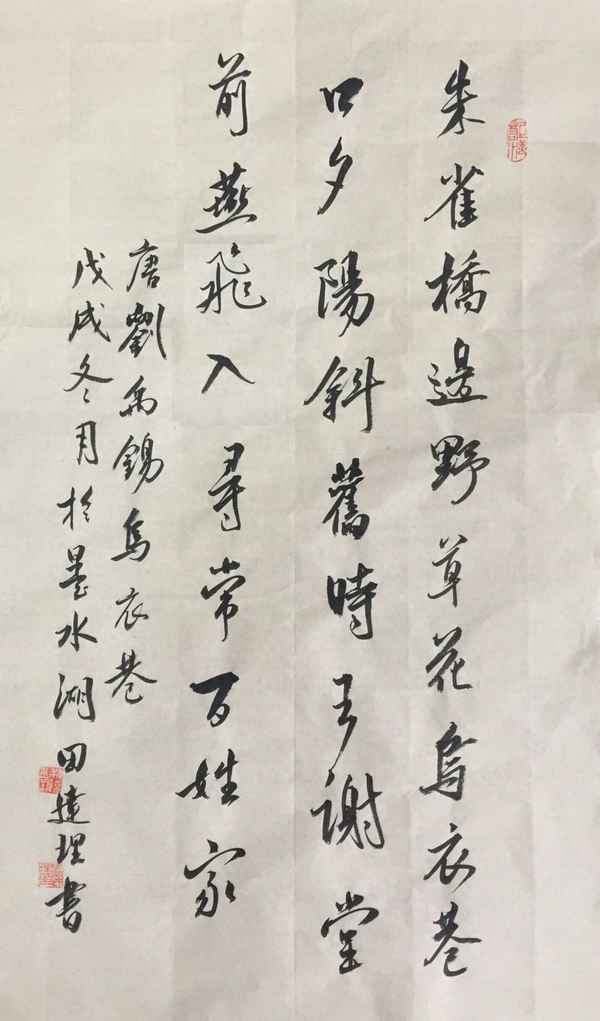 朱雀橋邊野草花烏衣巷
口夕陽斜舊時王謝堂
前燕飛入尋常百姓家
唐劉禹錫烏衣巷
戊戌冬月於墨水湖田達理書